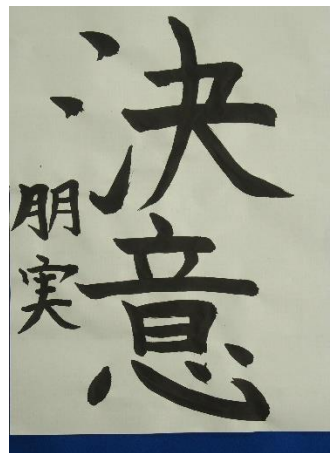 決意
朋実